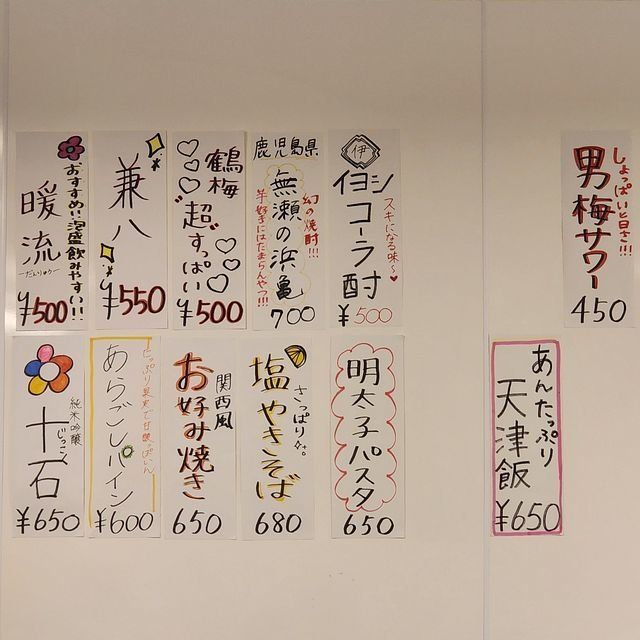 おすすめ!!泡盛飲みやすい!!
暖流
だんりゅう
¥500
兼八
¥550
鶴梅
"超"すっぱい
¥500
鹿児島県
幻の焼酎!!!
無瀬の浜亀
芋好きにはたまらんやつ!!!
700
伊
イヨシ
コーラ酎
スキになる味〜
¥500
しょっぱいと旨さ!!!
男梅サワー
450
純米吟醸
十石
じっこく
¥650
たっぷり果実で甘酸っぱいん
あらごしパイン
¥600
関西風
お好み焼き
650
さっぱり
塩やきそば
680
明太子パスタ
650
あんたっぷり
天津飯
¥650